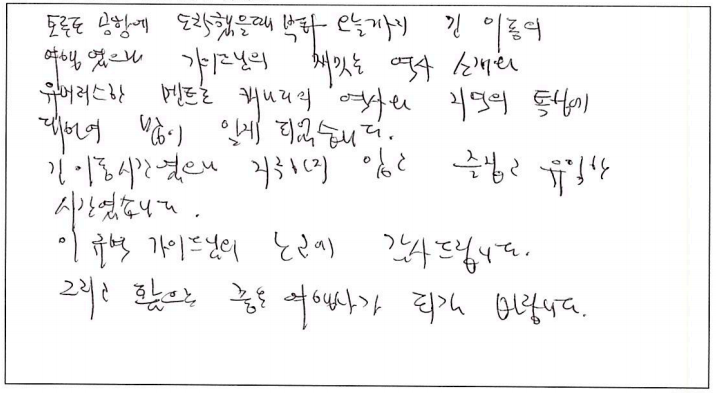 토론토 공항에 도착했을때 부터 오늘까지 긴 이동의
여행 였으나 가이드님의 재밋는 역사 소개와
유머러스한 멘트로 캐나다의 역사와 지역의 특성에
대하여 많이 알게 되었습니다.
긴 이동시간 였으나 지루하지 않고 즐겁고 유익한
시간였습니다.
이 규백 가이드님의 노고에 감사드립니다.
그리고 좋은 여행사가 되기 바랍니다.